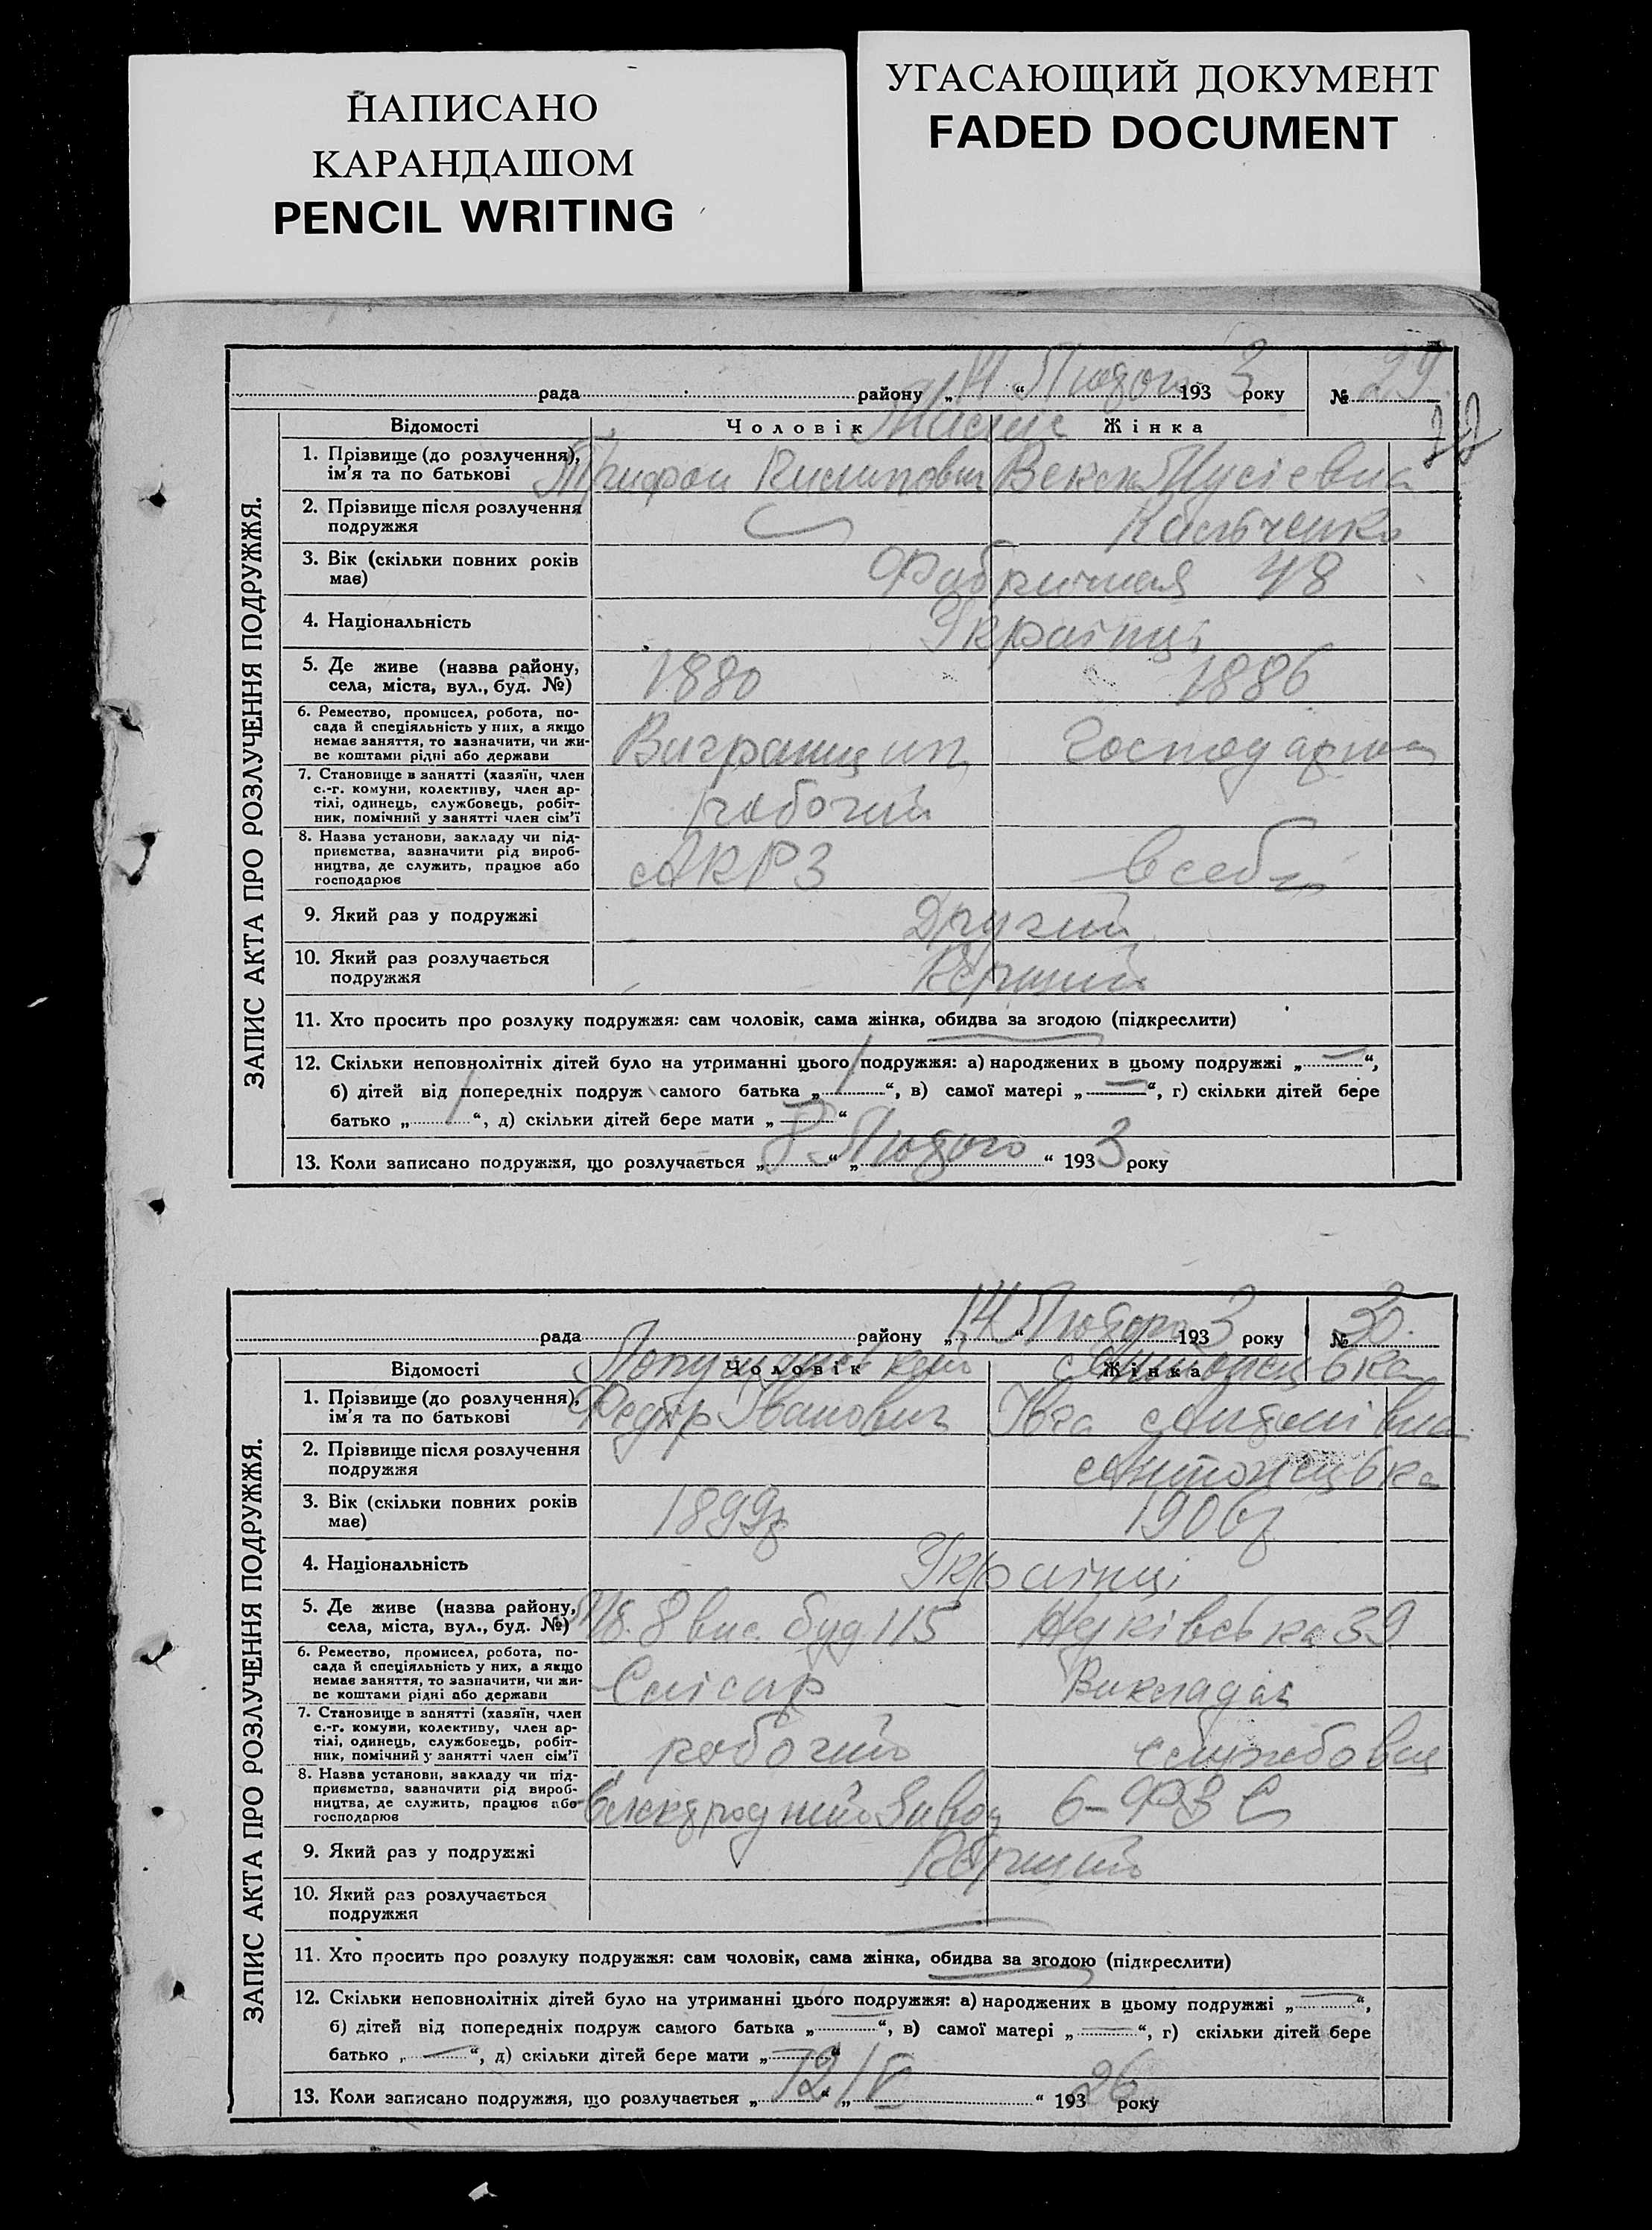 НАПИСАНО
КАРАНДАШОМ
PENCIL WRITING
УГАСАЮЩИЙ ДОКУМЕНТ
FADED DOCUMENT
ЗАПИС АКТА ПРО РОЗЛУЧЕННЯ ПОДРУЖЖЯ.
рада району „14“ Лютого 1933 року № 29
Відомості Чоловік Жінка
1. Прізвище (до розлучення), ім'я та по батькові Трифон Пилипович Векла
2. Прізвище після розлучення
подружжя Кальченко
3. Вік (скільки повних років
має) Фабричная 48
4. Національність Українці
5. Де живе (назва району,
села, міста, вул., буд. №) 1880 1886
6. Ремество, промисел, робота, по-
сада й спеціяльність у них, а якщо
немає заняття, то зазначити, чи жи-
ве коштами рідні або держави Господарка
7. Становище в занятті (хазяїн, член
с.-г. комуни, колективу, член ар-
тілі, одинець, службовець, робіт-
ник, помічний у занятті член сім'ї робочий
8. Назва установи, закладу чи під-
приємства, зазначити рід вироб-
ництва, де служить, працює або
господарює АКРЗ в себе
9. Який раз у подружжі Другий
10. Який раз розлучається
подружжя Перший
11. Хто просить про розлуку подружжя: сам чоловік, сама жінка, обидва за згодою (підкреслити)
12. Скільки неповнолітніх дітей було на утриманні цього подружжя: а) народжених в цьому подружжі „—“,
б) дітей від попередніх подруж самого батька „1“, в) самої матері „—“, г) скільки дітей бере
батько „1“, д) скільки дітей бере мати „—“
13. Коли записано подружжя, що розлучається „8“ „Лютого“ 1933 року
ЗАПИС АКТА ПРО РОЗЛУЧЕННЯ ПОДРУЖЖЯ.
рада району „14“ Лютого 1933 року № 30.
Відомості Чоловік Жінка Антонецька
1. Прізвище (до розлучення),
ім'я та по батькові Федір Іванович Юга Антонівна
2. Прізвище після розлучення
подружжя Антонецька
3. Вік (скільки повних років
має) 1899 1906
4. Національність Українці
5. Де живе (назва району,
села, міста, вул., буд. №) 8 вис. буд. 115 39
6. Ремество, промисел, робота, по-
сада й спеціяльність у них, а якщо
немає заняття, то зазначити, чи жи-
ве коштами рідні або держави Слісар Викладач
7. Становище в занятті (хазяїн, член
с.-г. комуни, колективу, член ар-
тілі, одинець, службовець, робіт-
ник, помічний у занятті член сім'ї робочий службовець
8. Назва установи, закладу чи під-
приємства, зазначити рід вироб-
ництва, де служить, працює або
господарює Електродний завод 6-ФЗС
9. Який раз у подружжі Перший
10. Який раз розлучається
подружжя —
11. Хто просить про розлуку подружжя: сам чоловік, сама жінка, обидва за згодою (підкреслити)
12. Скільки неповнолітніх дітей було на утриманні цього подружжя: а) народжених в цьому подружжі „—“,
б) дітей від попередніх подруж самого батька „—“, в) самої матері „—“, г) скільки дітей бере
батько „—“, д) скільки дітей бере мати „—“
13. Коли записано подружжя, що розлучається „12“ „IV“ 193 26 року